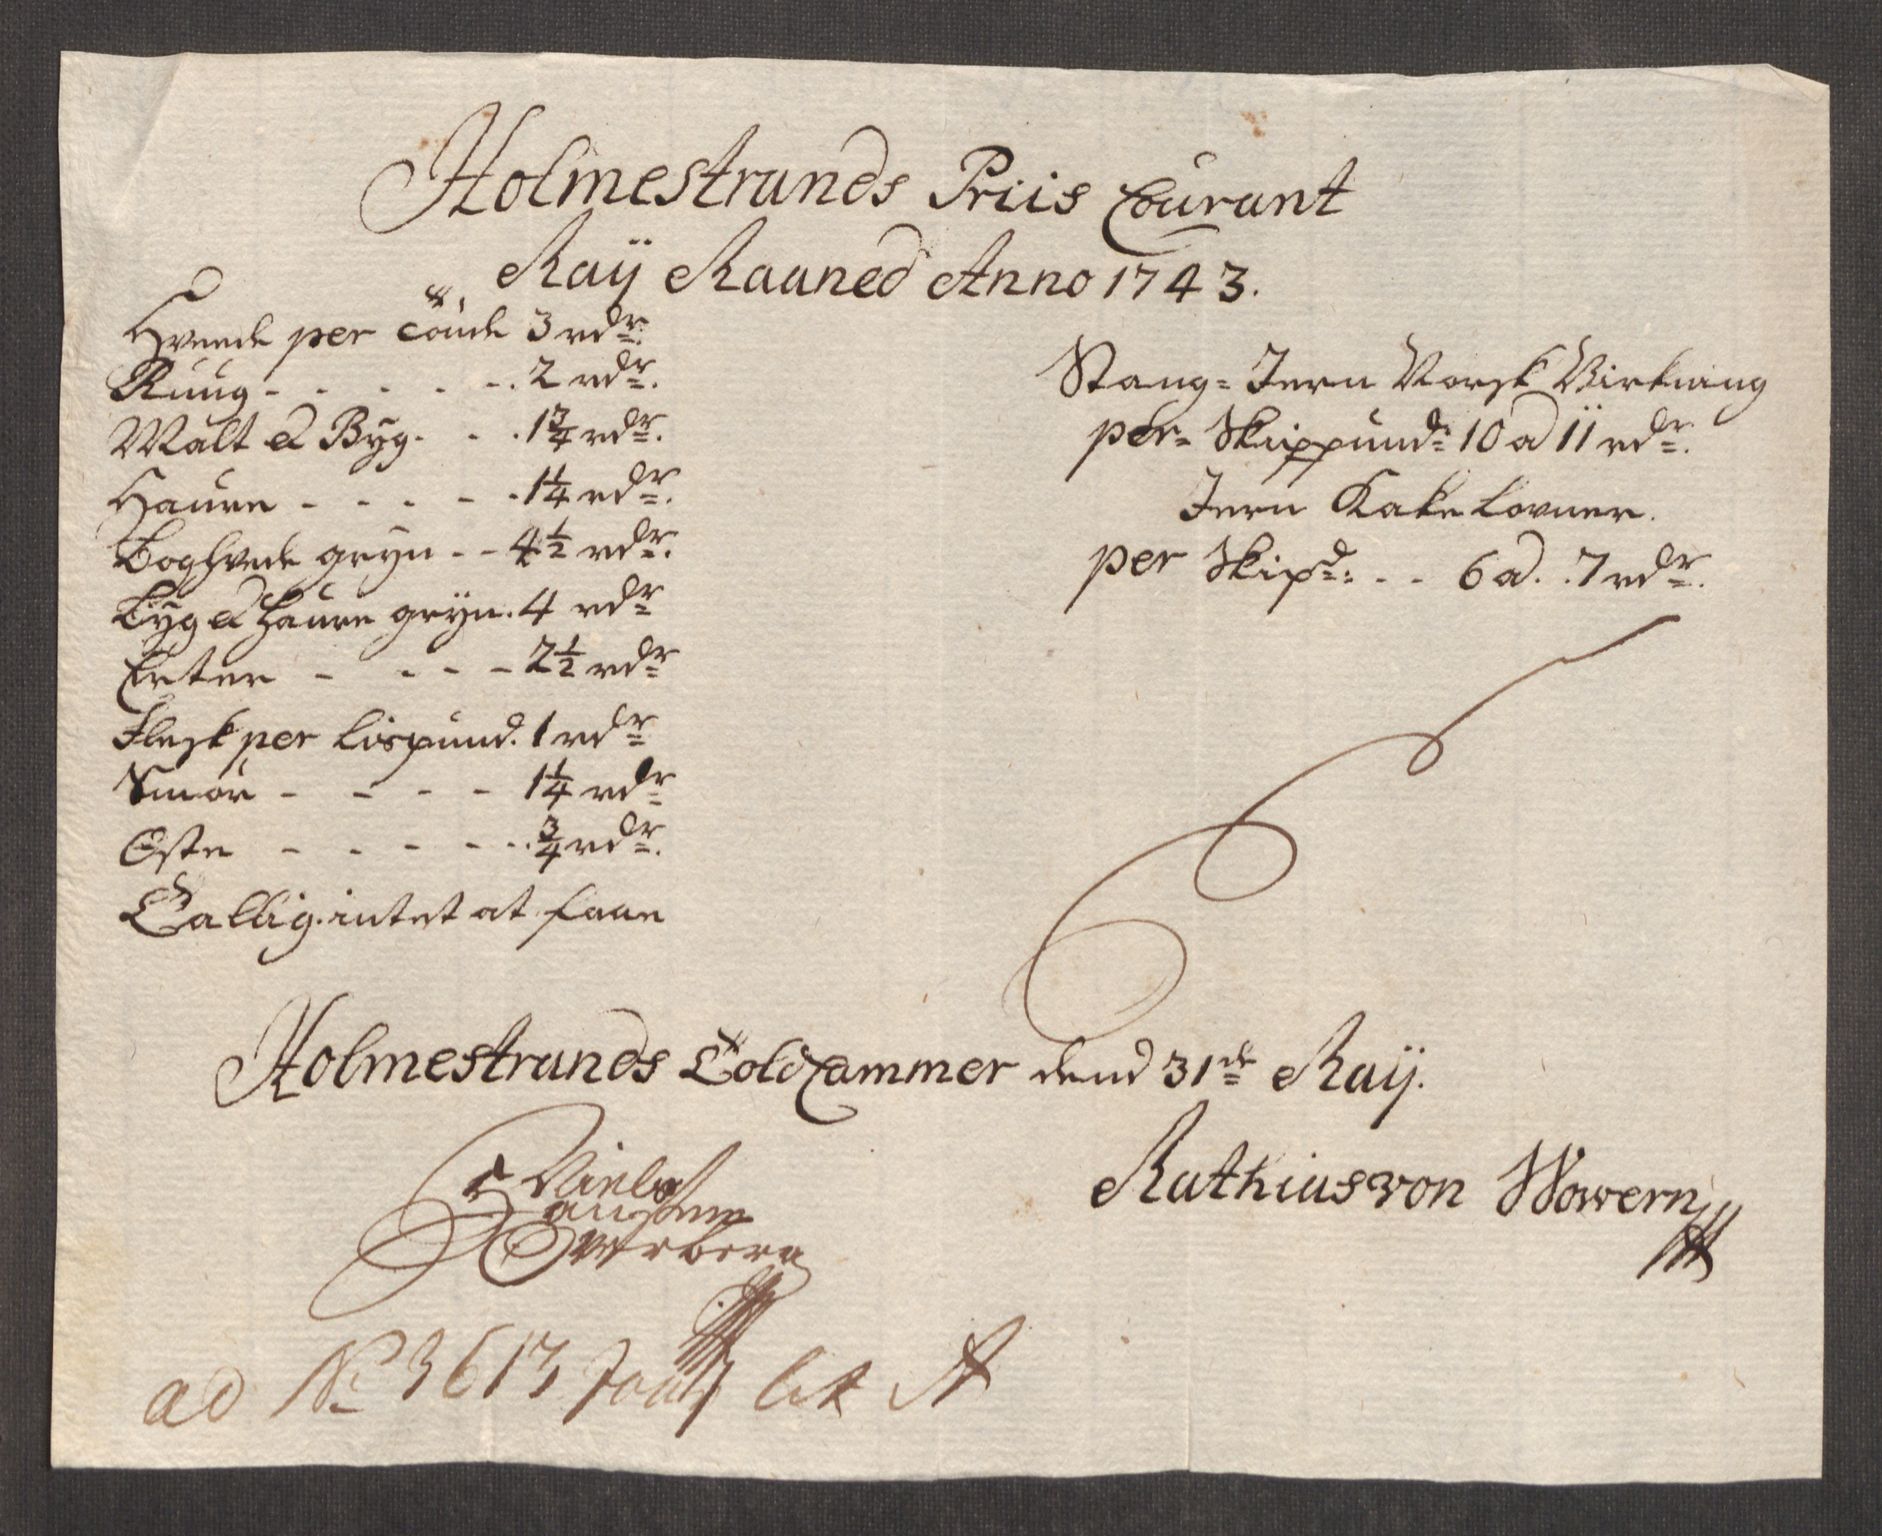 Holmestrands Priis Courant
Maÿ Maaned Anno 1743.
Hveede per Tönde 3 rdr.
Ruug - - - - - 2 rdr.
Malt & Byg. - - 1 3/4 rdr.
Haure - - - - - 1 1/4 rdr.
Boghvede gryn - - 4 1/2 rdr.
Byg & Haure grÿn. 4 rdr
Erter - - - - 2 1/2 rdr
Flesk per Lispund. 1 rdr
Smör - - - - 1 1/4 rdr
Oste - - - - - 3/4 rdr.
Tallig intet at faae
Stang= Jern Norsk Virkning
per= Skippund: 10 a 11 rdr.
Jern Kakelovner.
per Skipd: - - 6 a 7 rdr.
Holmestrands Toldcammer dend 31de Maÿ.
Niels
Hansen
Overberg
Mathias von Wowern
ad No 3613 Lit A